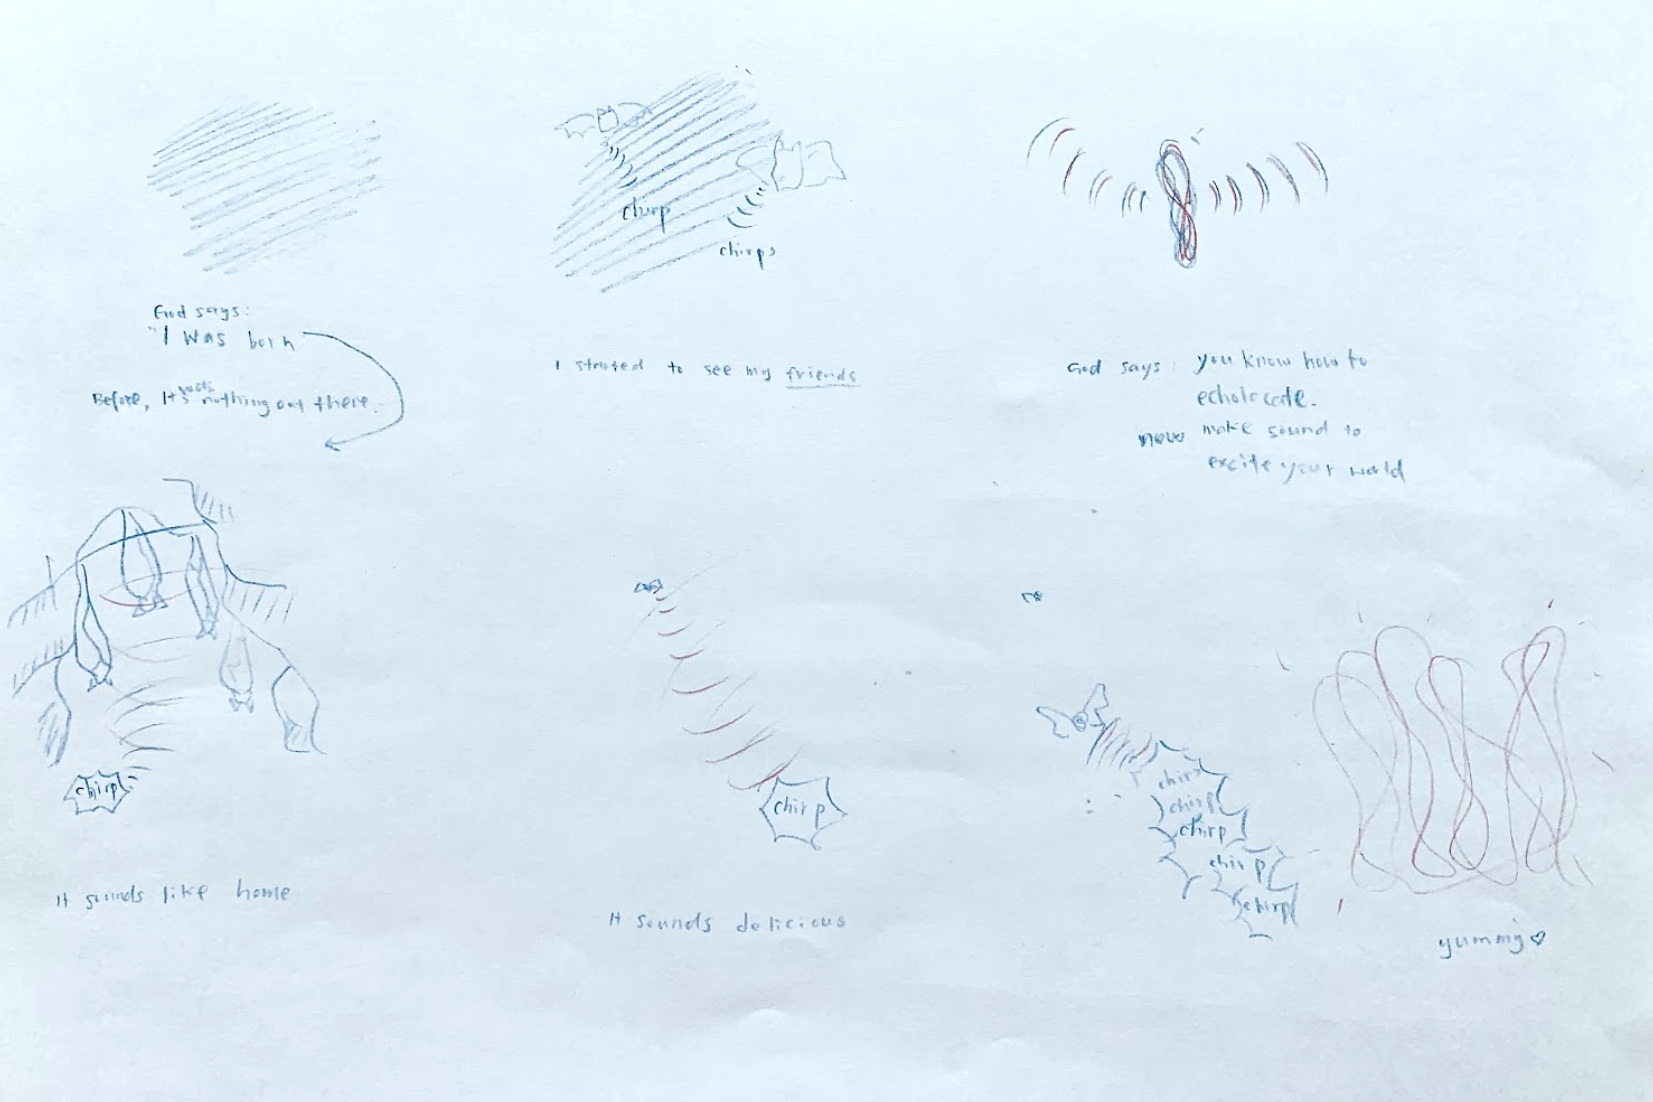 God says:
"I was born
Before, It's was nothing out there.
chirp
chirps
I started to see my friends
God says: you know how to
echolocate.
now make sound to
excite your world
chirp
It sounds like home
chirp
It sounds delicious
chirp
chirp
chirp
chirp
chirp
yummy